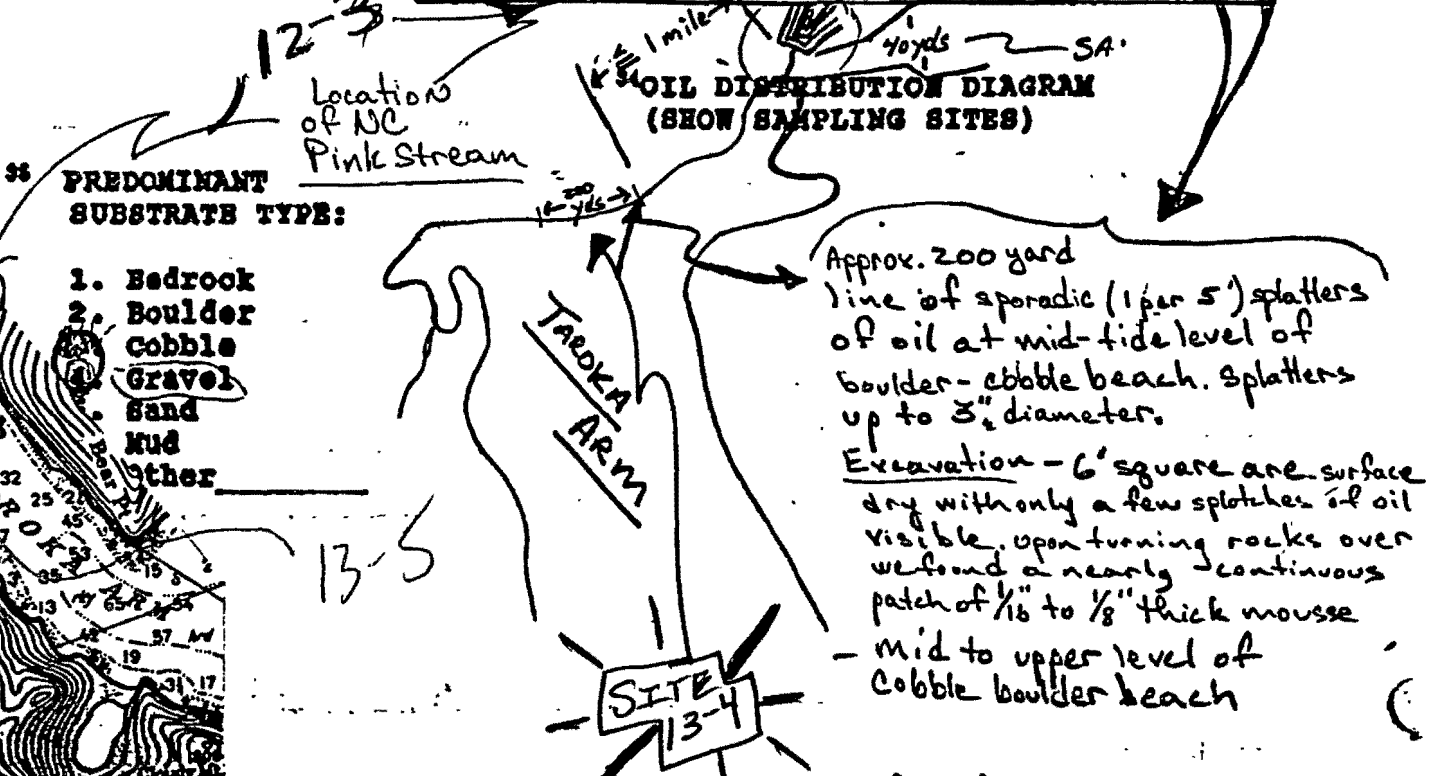 12-3
1 mile
40yds
SA.
Location
of NC
Pink Stream
OIL DISTRIBUTION DIAGRAM
(SHOW SAMPLING SITES)
PREDOMINANT
SUBSTRATE TYPE:
1. Bedrock
2. Boulder
Cobble
4. Gravel
. Sand
Mud
Other
200
yds
TAROKA
ARM
Approx. 200 yard
line of sporadic (1 per 5') splatters
of oil at mid-tide level of
boulder-cobble beach. Splatters
up to 3" diameter.
Excavation - 6' square are surface
dry with only a few splotches of oil
visible. upon turning rocks over
we found a nearly continuous
patch of 1/16" to 1/8" thick mousse
- mid to upper level of
cobble boulder beach
13-5
SITE
13-4
Bear Pt
32
25
21
45
53
35
15
5
2
13
65
54
42
57
19
31
17